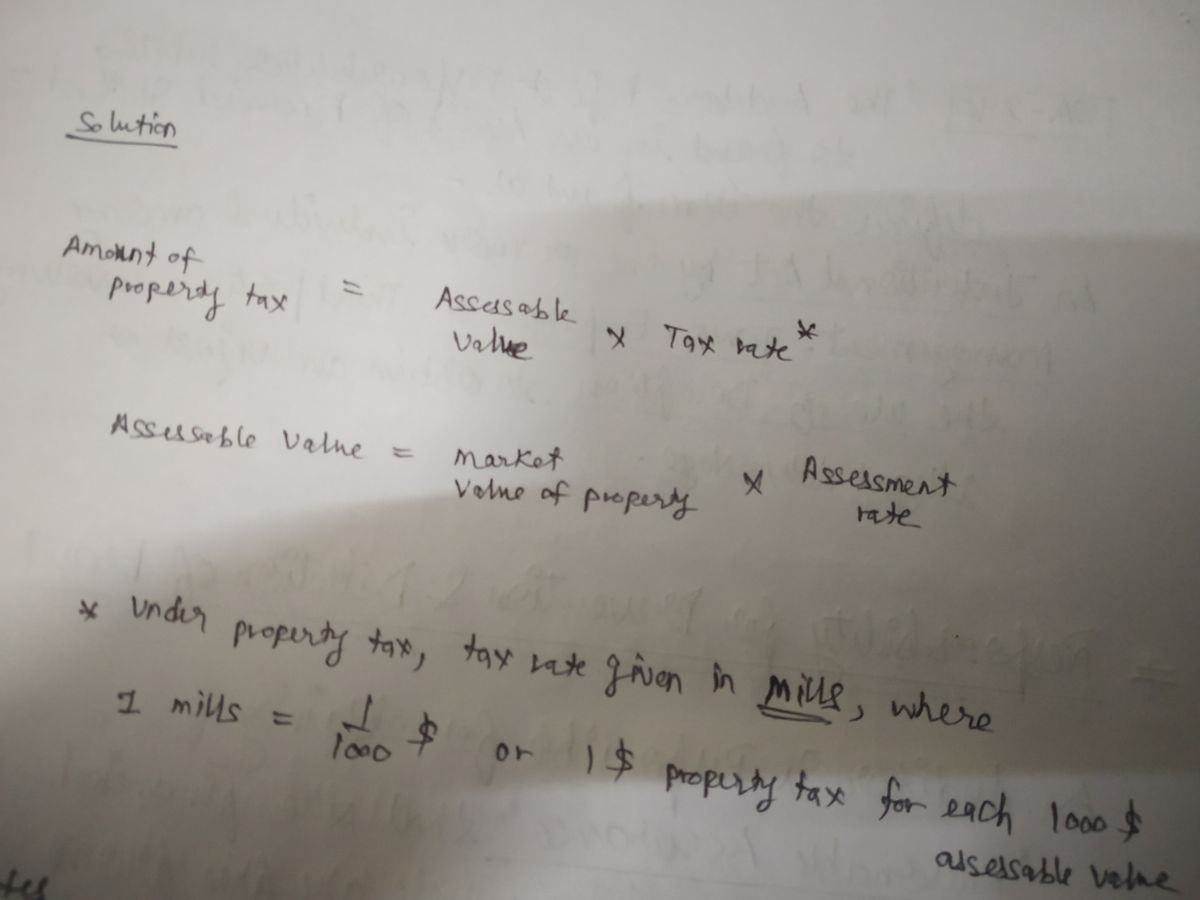 Solution
Amount of
property tax = Assessable
value x Tax rate*
Assessable value = market
value of property x Assessment
rate
* Under property tax, tax rate given in mills, where
1 mills = 1/1000 $ or 1 $ property tax for each 1000 $
assessable value